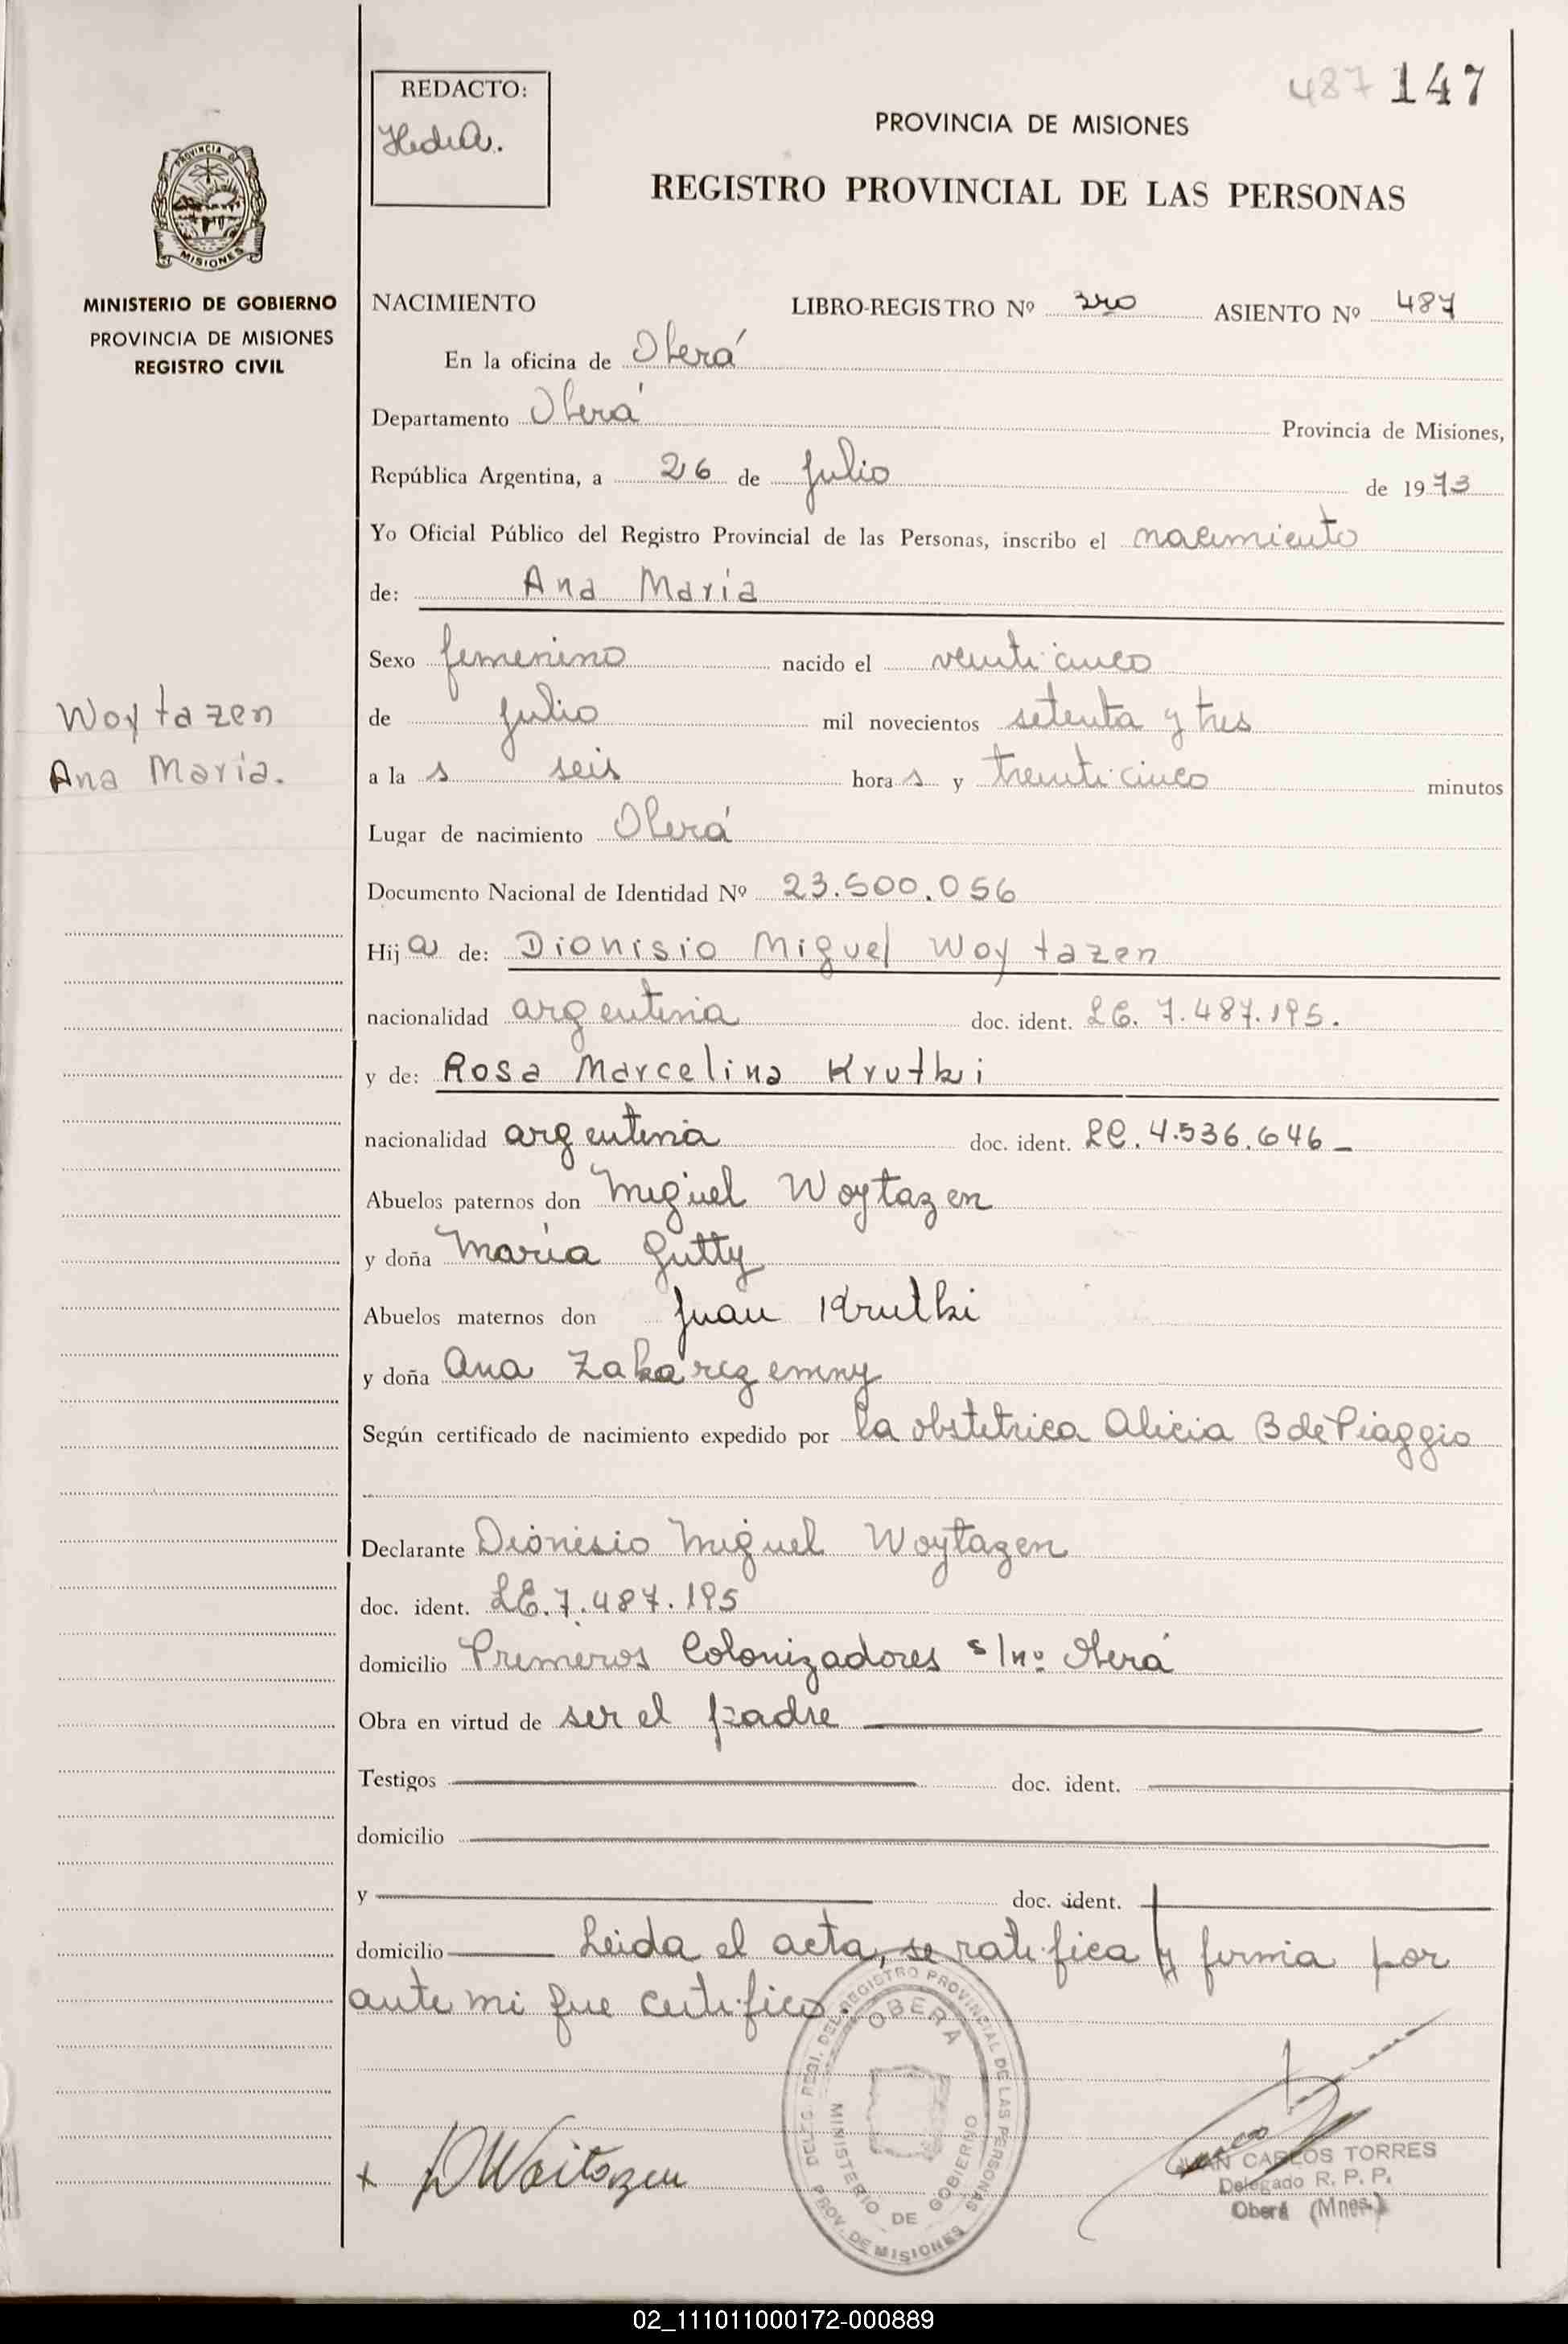 487 147
REDACTO:
PROVINCIA DE MISIONES
REGISTRO PROVINCIAL DE LAS PERSONAS
PROVINCIA DE
MISIONES
MINISTERIO DE GOBIERNO
PROVINCIA DE MISIONES
REGISTRO CIVIL
NACIMIENTO LIBRO-REGISTRO Nº 3ro ASIENTO Nº 487
En la oficina de Oberá
Departamento Oberá Provincia de Misiones,
República Argentina, a 26 de julio de 1973
Yo Oficial Público del Registro Provincial de las Personas, inscribo el nacimiento
de: Ana Maria
Sexo femenino nacido el veinti cinco
Woytazen
Ana Maria.
de julio mil novecientos setenta y tres
a la s seis hora s y treinti cinco minutos
Lugar de nacimiento Oberá
Documento Nacional de Identidad Nº 23.500.056
Hij a de: Dionisio Miguel Woytazen
nacionalidad argentina doc. ident. LE. 7.487.195.
y de: Rosa Marcelina Krutki
nacionalidad argentina doc. ident. LC. 4.536.646_
Abuelos paternos don Miguel Woytazen
y doña María Gutty
Abuelos maternos don Juan Krutki
y doña Ana Zakarezemny
Según certificado de nacimiento expedido por la obstetrica Alicia B de Piaggio
Declarante Dionisio Miguel Woytazen
doc. ident. LE.7.487.195
domicilio Primeros Colonizadores s/nº Oberá
Obra en virtud de ser el padre
Testigos doc. ident.
domicilio
y doc. ident.
domicilio Leida el acta, se ratifica y firma por
ante mi que certifico.
DELEG. REGI. DEL REGISTRO PROVINCIAL DE LAS PERSONAS
OBERA
MINISTERIO DE GOBIERNO
PROV. DE MISIONES
x DWoitazen
JUAN CARLOS TORRES
Delegado R. P. P.
Oberá (Mnes.)
02_111011000172-000889